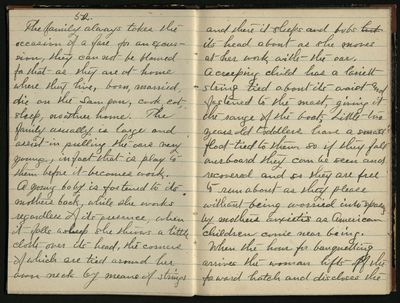 52.
The family always takes the
occasion of a fare for an excur-
sion, they can not be blamed
for that as they are at home
where they live, born, married,
die on the Sampan, cook, eat,
sleep, no other home. The
family usually is large and
assist in pulling the oars very
young, in fact that is play to
them before it becomes work.
A young baby is fastened to its
mothers back, while she works
regardless of its presence, when
it falls asleep she throws a little
cloth over its head, the corners
of which are tied around her
own neck by means of strings
and there it sleeps and bobs
its head about as she moves
at her work with the oar.
A creeping child has a
string tied about its waist and
fastened to the mast, giving it
the range of the boat, little two
years old toddlers have a small
float tied to them so if they fall
overboard they can be seen and
recovered and so they are free
to run about as they please
without being worried into
by mothers anxieties as American
children come near being.
When the hour for banqueting
arrives the woman lifts off the
forward hatch and discloses the